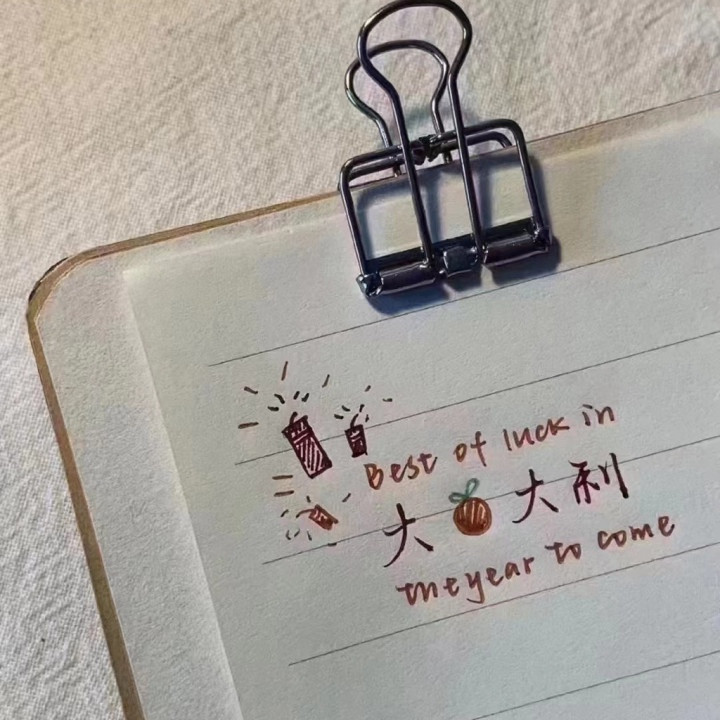 Best of luck in
大 大利
the year to come